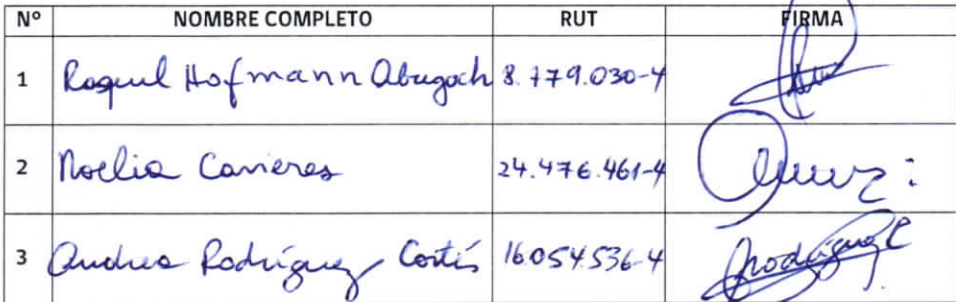 Nº NOMBRE COMPLETO RUT FIRMA
1 Raquel Hofmann Abugoch 8.779.030-4
2 Noelia Carreras 24.476.461-4
3 Andrea Rodríguez Cortés 16.054.536-4 Rodríguez C